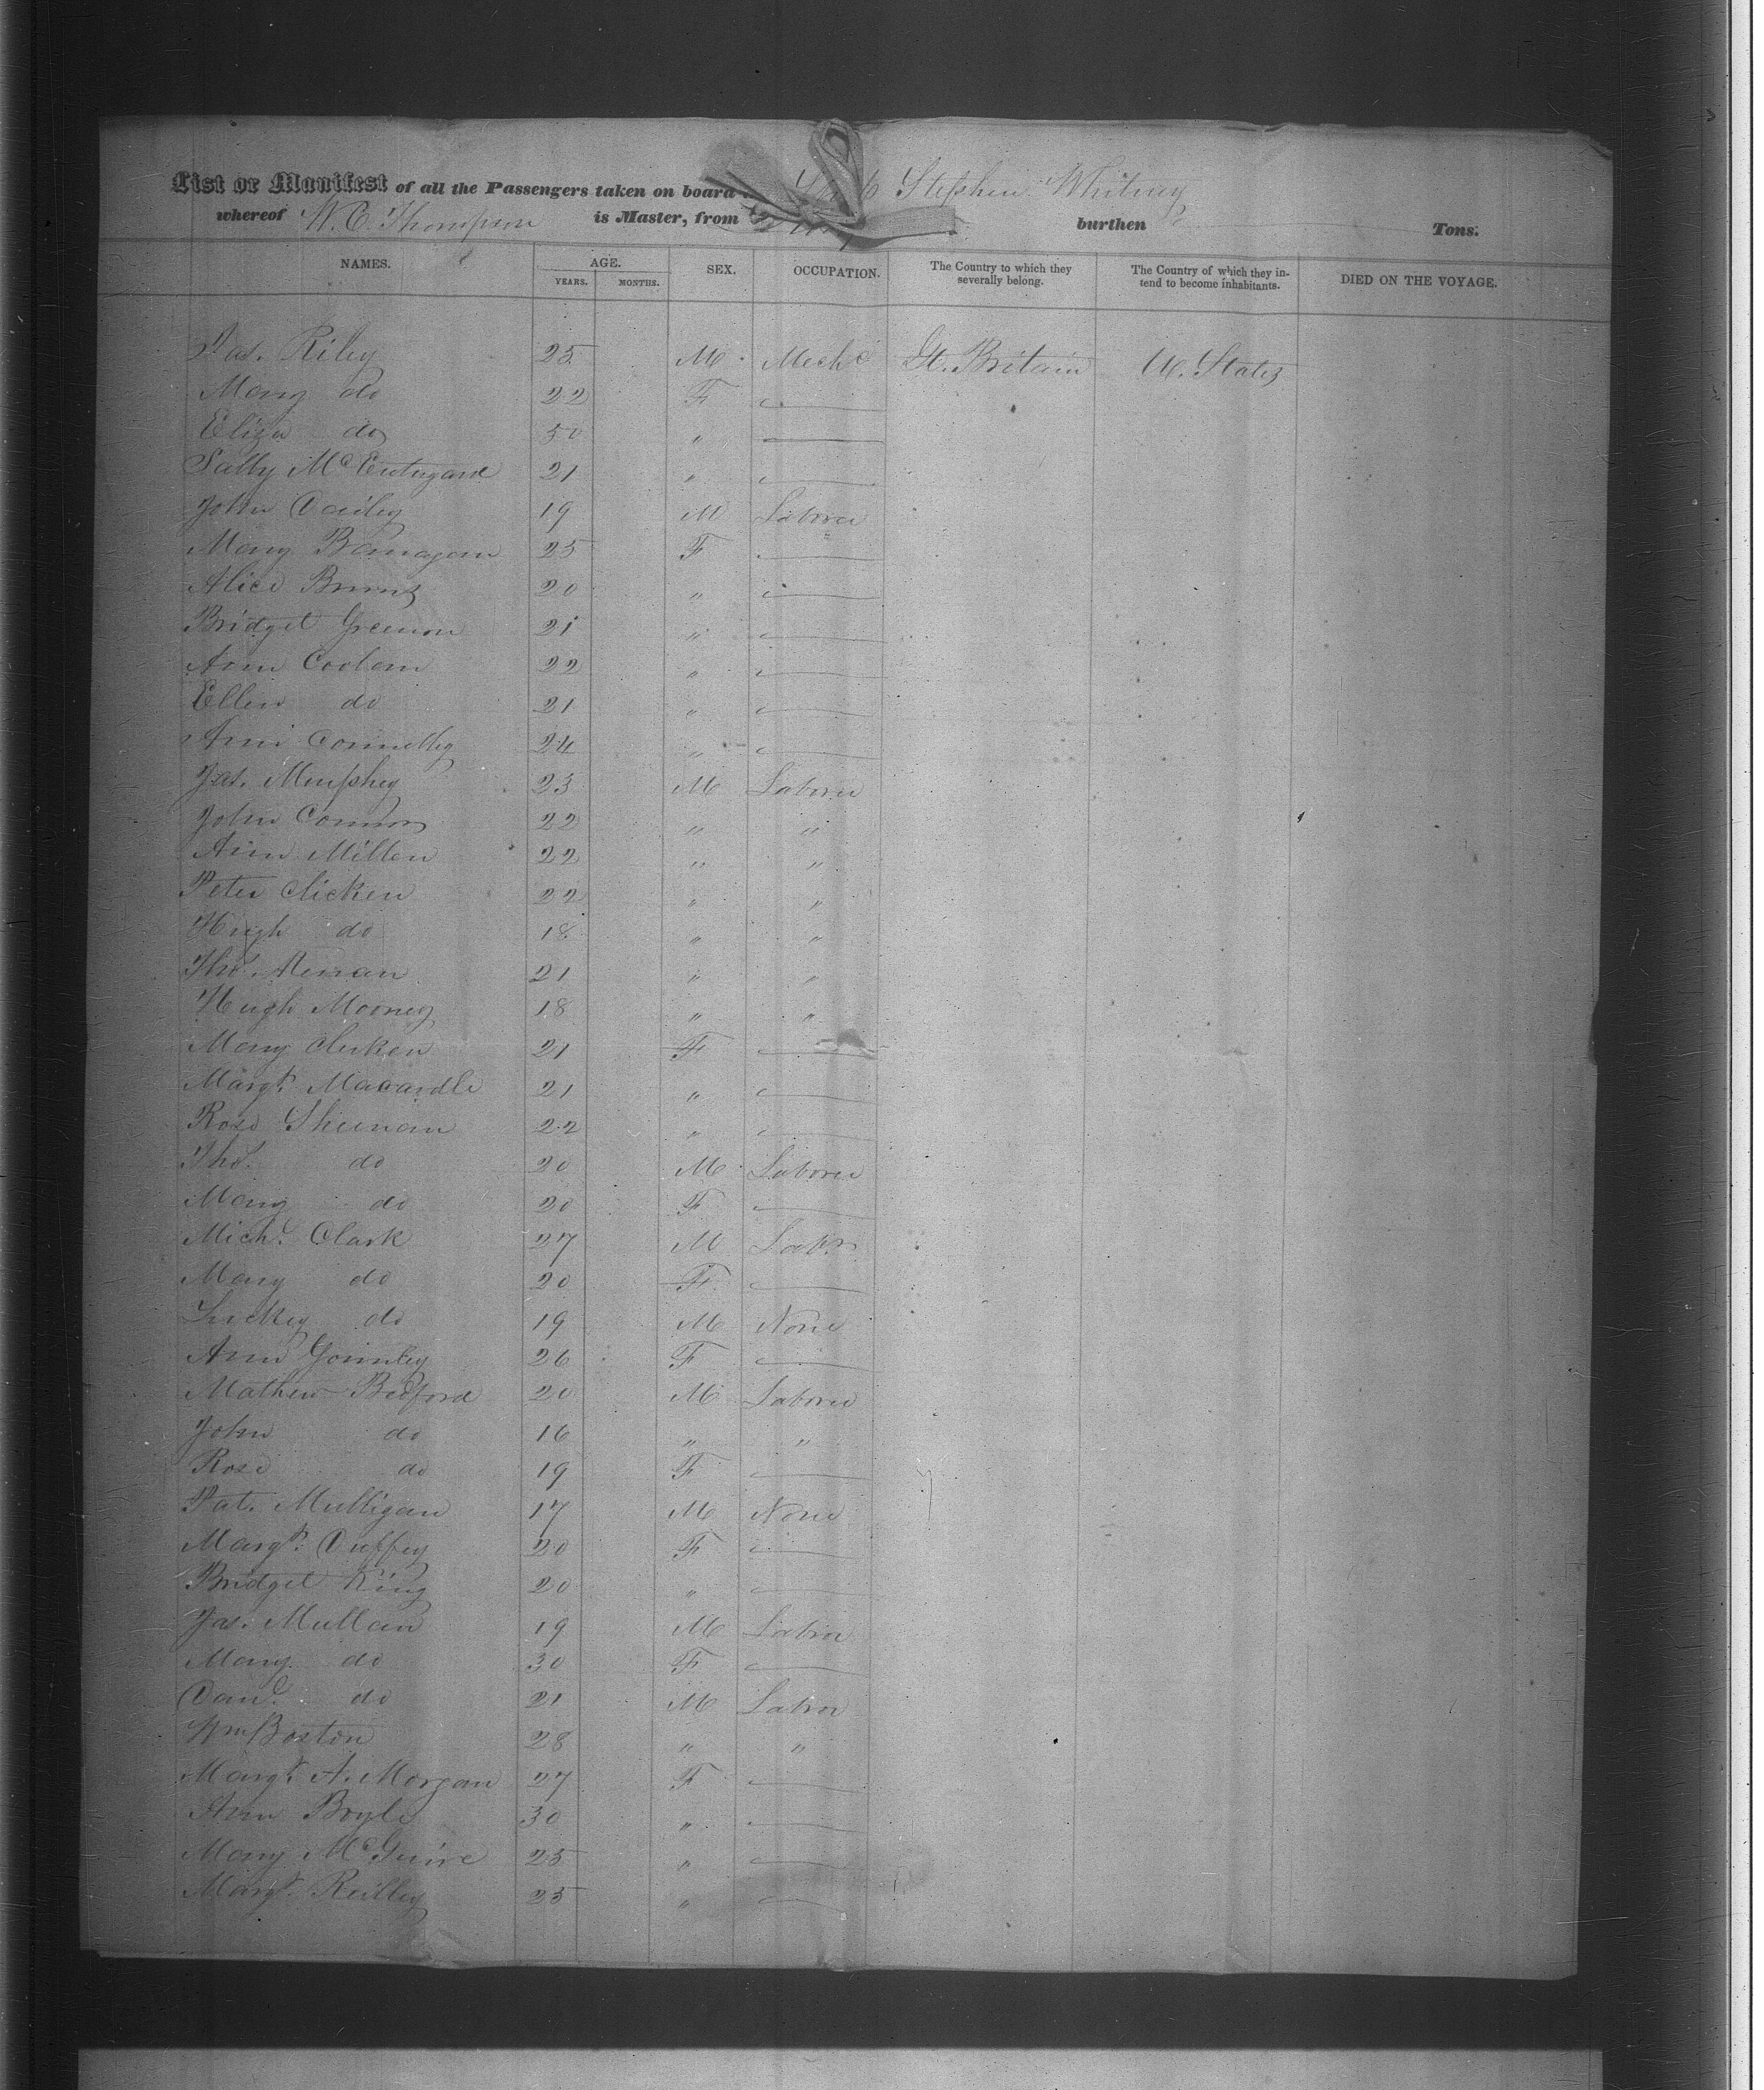 List or Manifest of all the Passengers taken on board Ship Stephen Whitney
whereof W. C. Thompson is Master, from burthen Tons.
NAMES. AGE. YEARS. MONTHS. SEX. OCCUPATION. The Country to which they severally belong. The Country of which they in-tend to become inhabitants. DIED ON THE VOYAGE.
Jas. Riley 25 M Mech'c Gt. Britain U. States
Mary do 22 F —
Eliza do 50 " —
Sally 21 " —
John Dailey 19 M Laborer
Mary 25 F —
Alice Burns 20 " —
Bridget 21 " —
Ann 22 " —
Ellen do 21 " —
Ann Connolly 24 " —
Jas. Murphey 23 M Laborer
John Connor 22 " "
Ann Millen 22 " "
Peter Clicken 22 " "
Hugh do 18 " "
Thos. 21 " "
Hugh Mooney 18 " "
Mary 21 F —
Margt. Macardle 21 " —
Rose Sheenan 22 " —
Thos. do 20 M Laborer
Mary do 20 F —
Mich'l Clark 27 M Labr
Mary do 20 F —
do 19 M None
Ann Gormley 26 F —
Mathew Bedford 20 M Laborer
John do 16 " "
Rose do 19 F —
Pat. Mulligan 17 M None
Margt. Duffey 20 F —
Bridget King 20 " —
Jas. Mullan 19 M Labor
Mary do 30 F —
Danl. do 21 M Labor
Wm Boston 28 " "
Margt. A. Morgan 27 F —
Ann Boyle 30 " —
Mary McGuire 25 " —
Margt. Reilley 25 " —